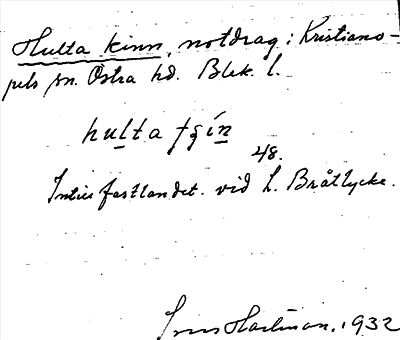 Hulta kinn, notdrag i Kristiano-
pels sn. Östra hd. Blek. l.
hulta
48.
Intill fastlandet. vid L. Bråtlycke.
Hartman, 1932